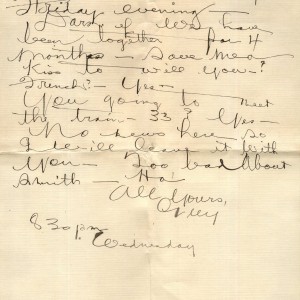 Friday evening —
if we have
been together for 4
Months — Save me a
Kiss to will you?
French? — Yes —
You going to meet
the train — 33? Yes —
No news here so
I will leave it with
You — Too bad About
Smith — Ha!
All Yours,
8 30 pm
Wednesday